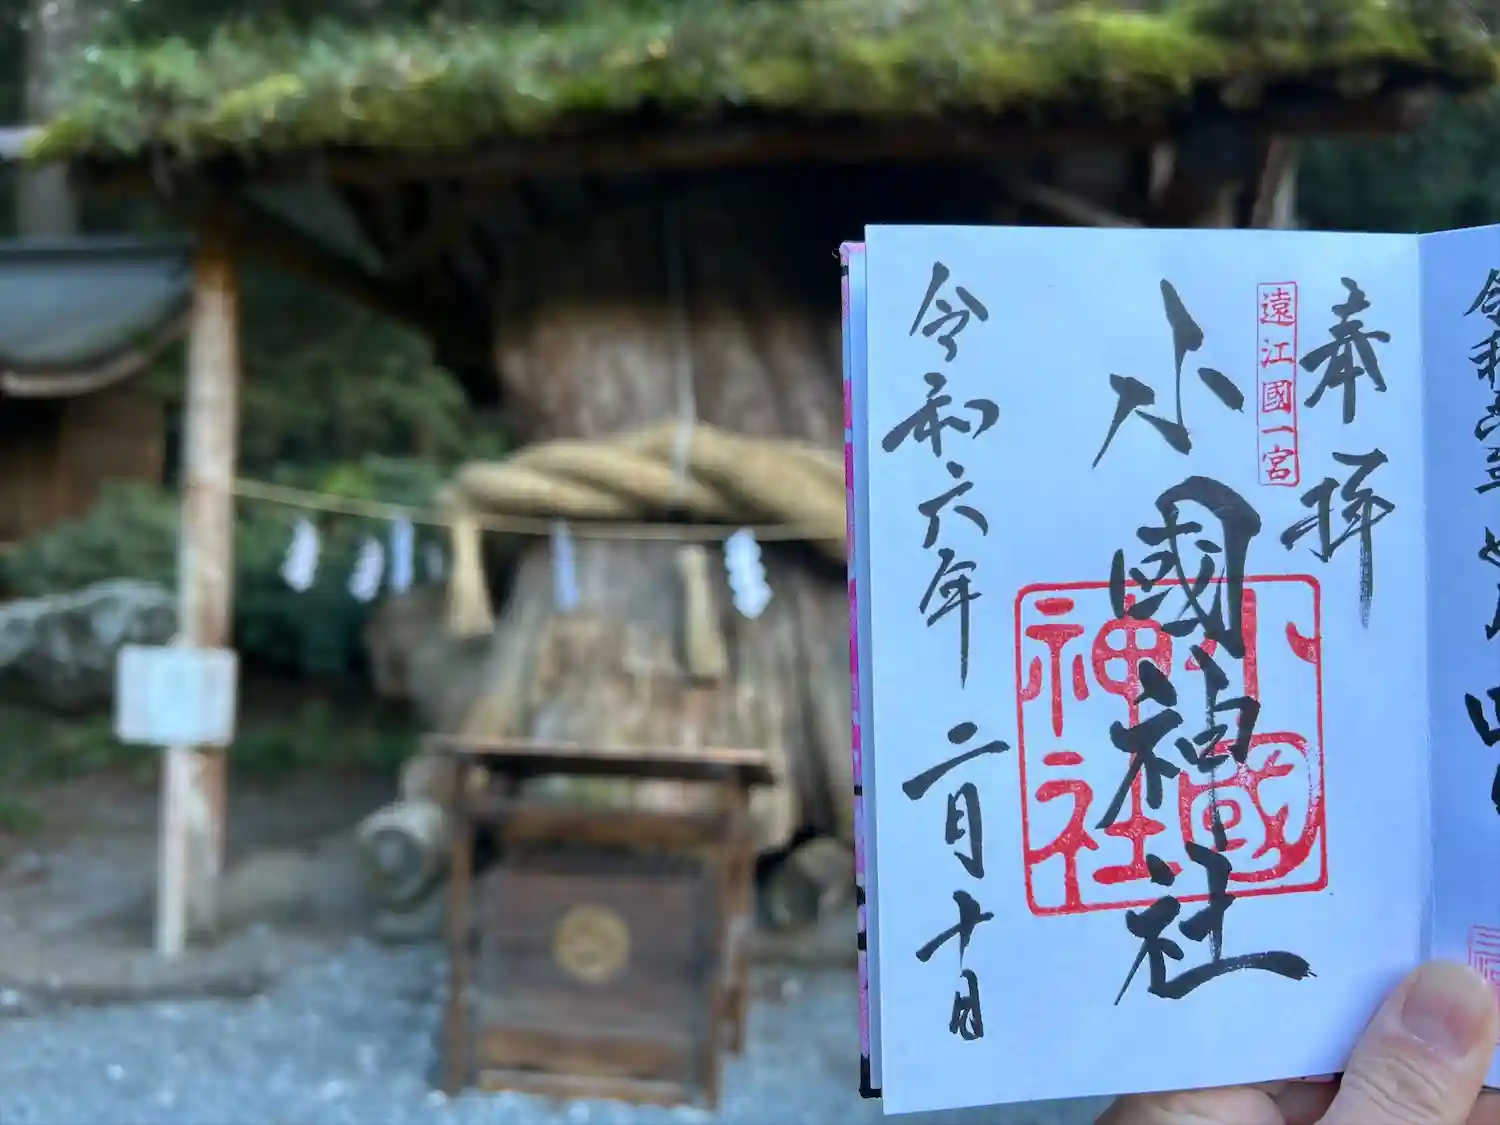 奉拝
遠江國一宮
小國神社
小國
神社
令和六年二月十日